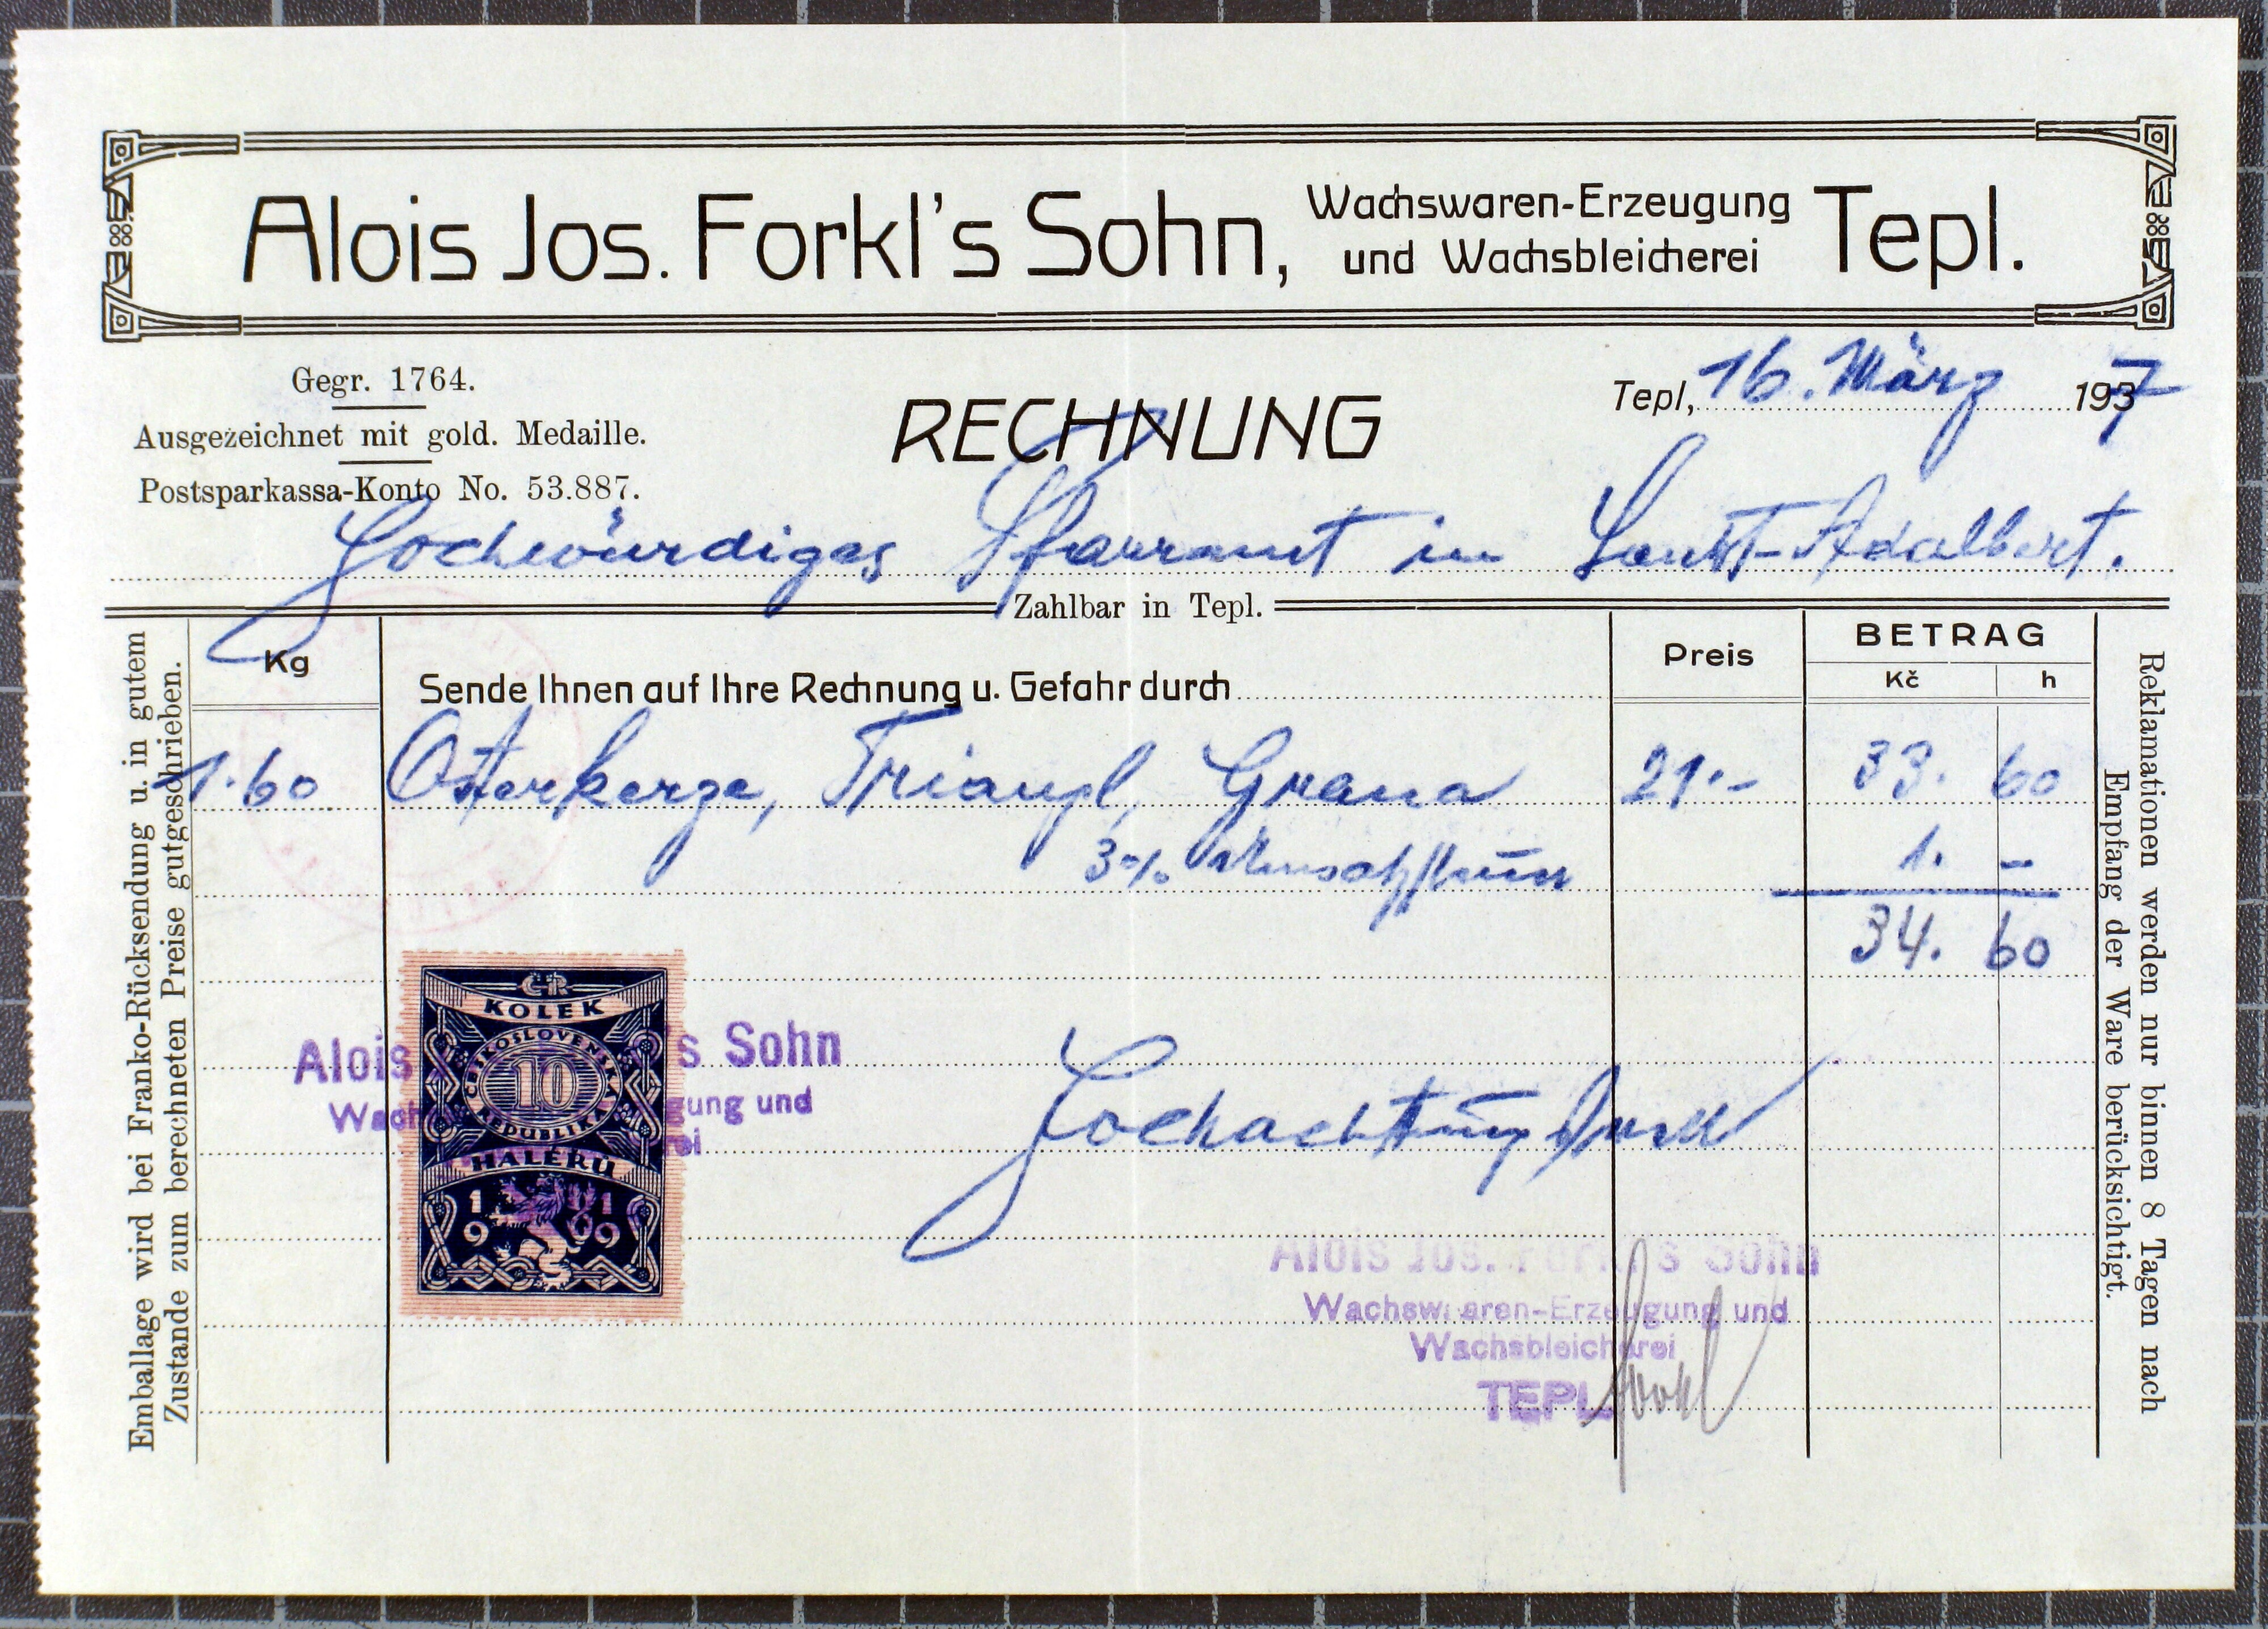 Alois Jos. Forkl's Sohn, Wachswaren-Erzeugung und Wachsbleicherei Tepl.
Gegr. 1764.
Ausgezeichnet mit gold. Medaille.
Postsparkassa-Konto No. 53.887.
RECHNUNG
Tepl, 16. März 1937
Hochwürdiges Pfarramt in Sankt-Adalbert.
Zahlbar in Tepl.
Kg
Sende Ihnen auf Ihre Rechnung u. Gefahr durch
Preis
BETRAG
Kč h
1.60 Osterkerze, Triangl, Grana 21.- 33. 60
3% Umsatzsteuer 1. -
34. 60
ČR
KOLEK
ČESKOSLOVENSKÁ
10
REPUBLIKA
HALÉŘŮ
1919
Alois s Sohn
Wach gung und
ei
Hochachtungsvoll
Alois Jos. Forkl's Sohn
Wachswaren-Erzeugung und
Wachsbleicherei
TEPL
Forkl
Emballage wird bei Franko-Rücksendung u. in gutem
Zustande zum berechneten Preise gutgeschrieben.
Reklamationen werden nur binnen 8 Tagen nach
Empfang der Ware berücksichtigt.